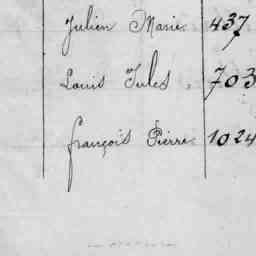 Julien Marie 437
Louis Jules 703
françois Pierre 1024